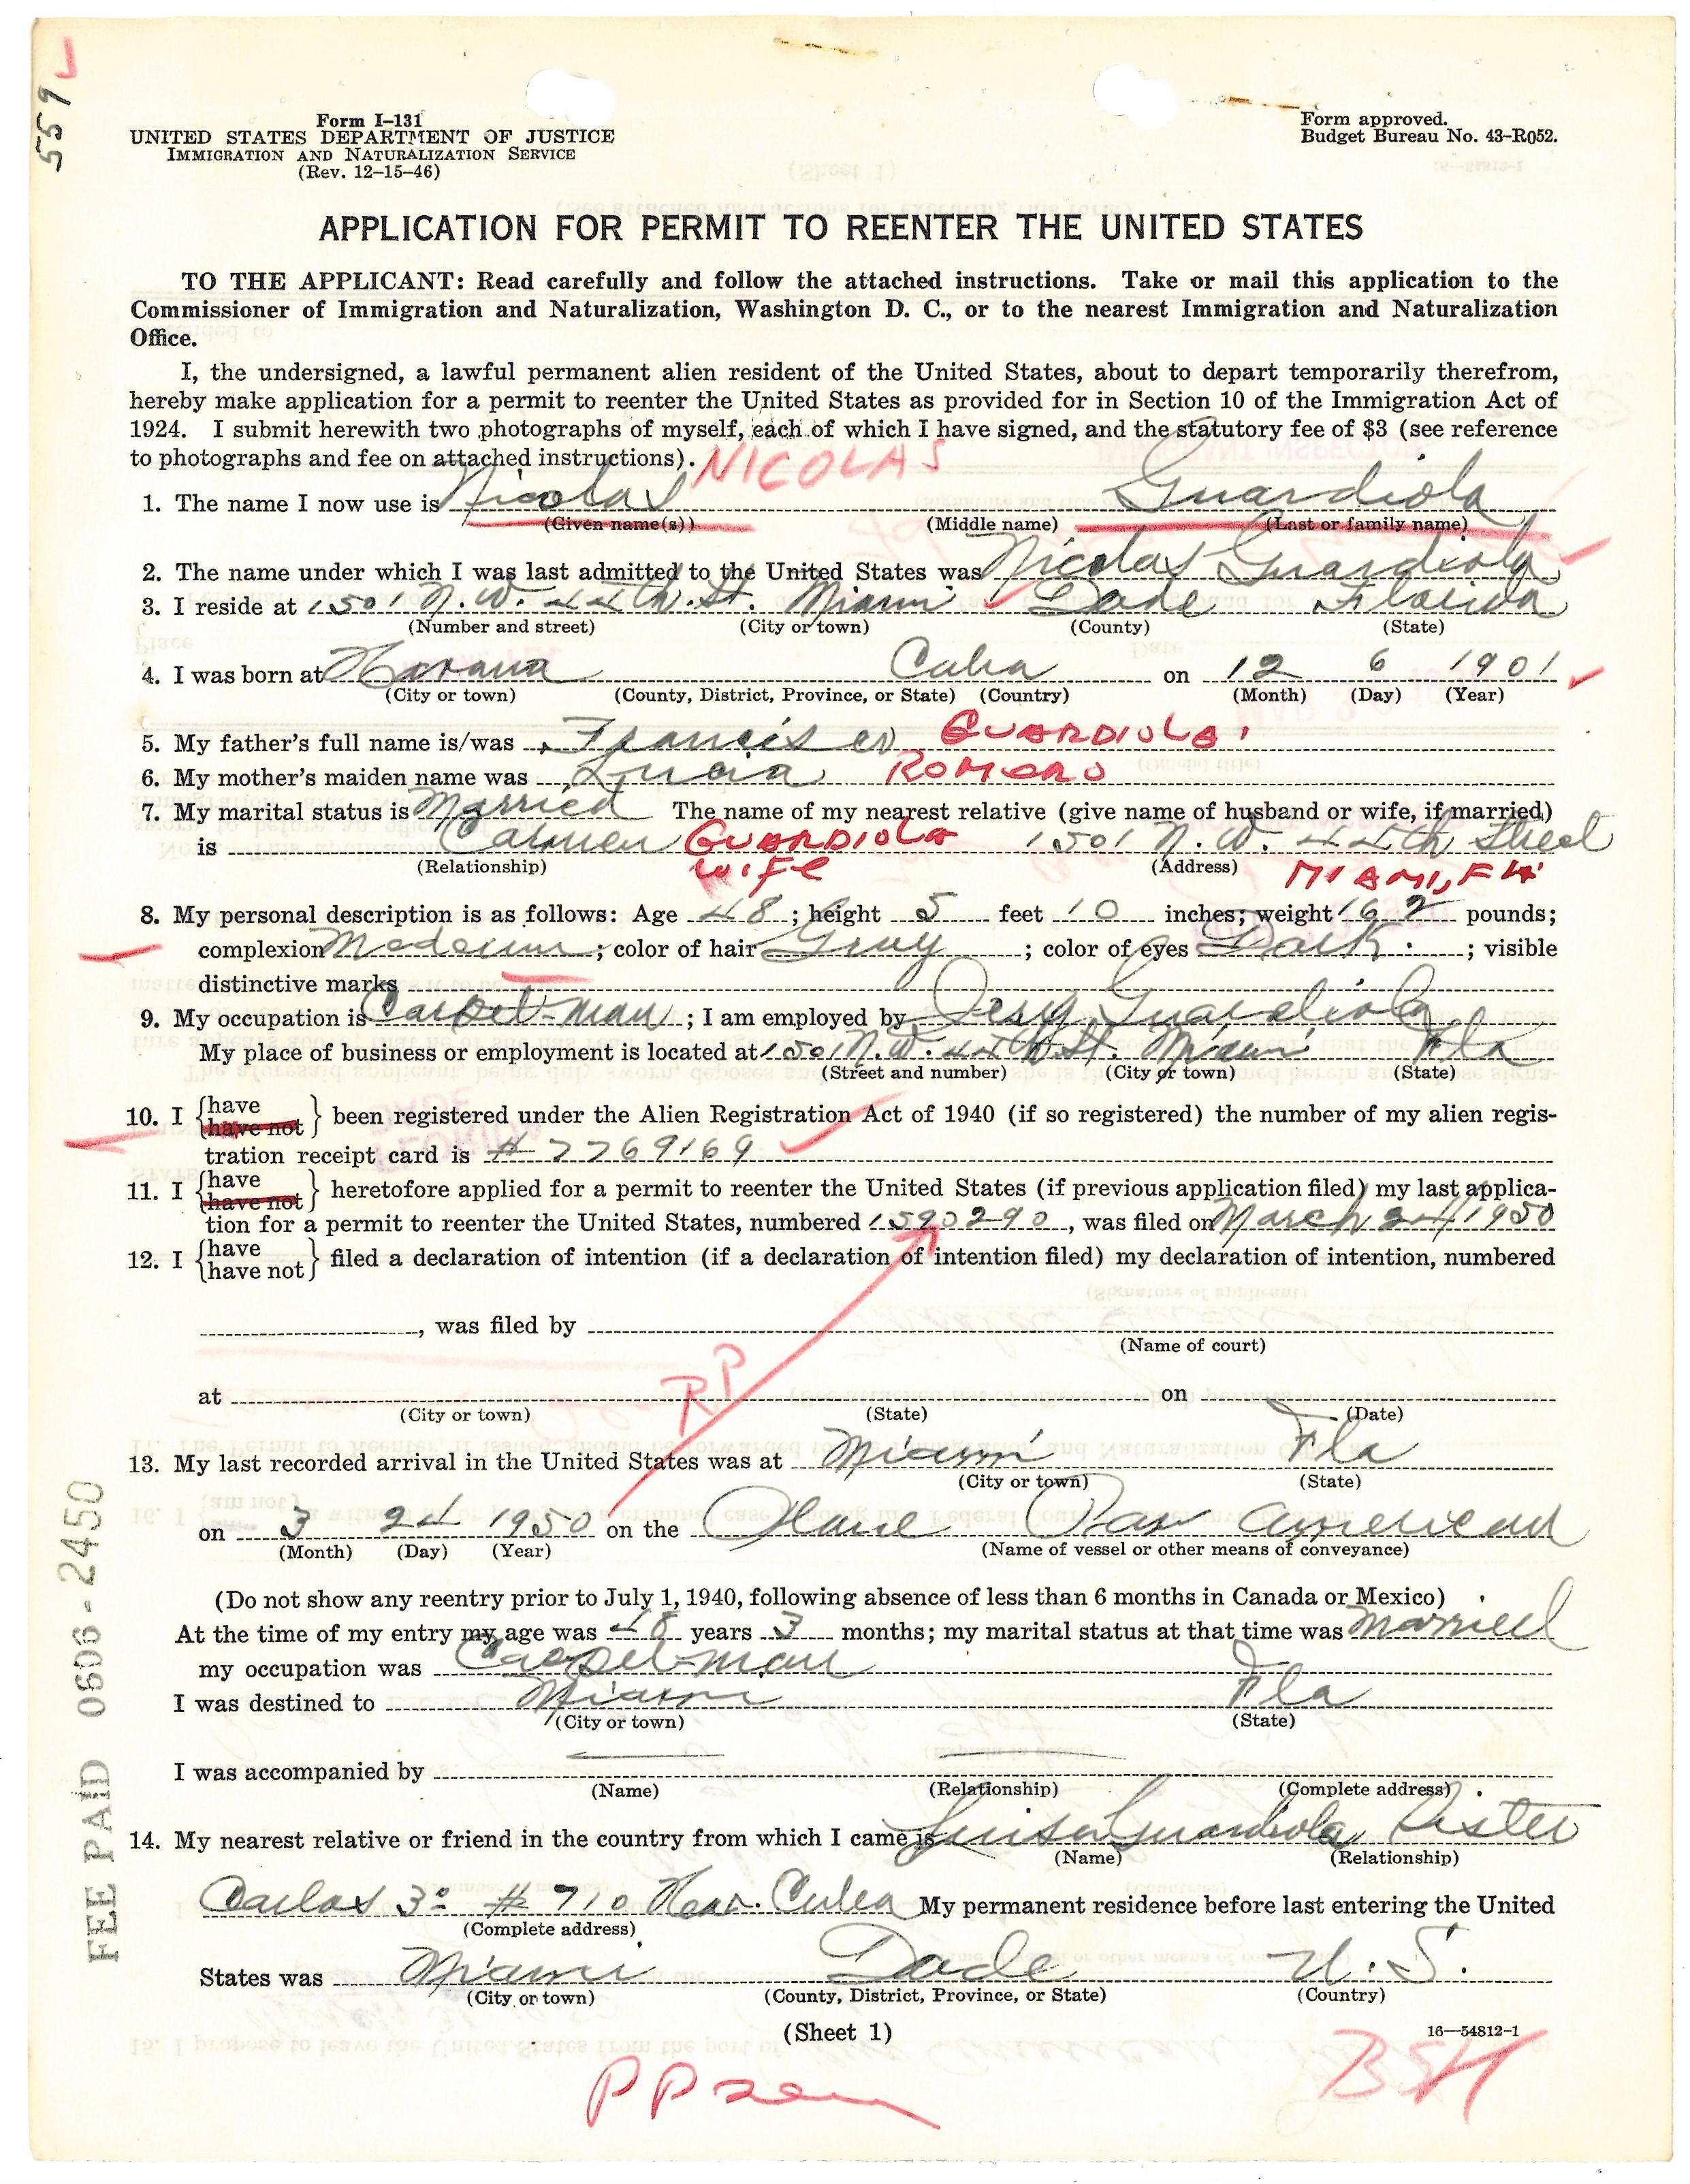 559
Form I-131
UNITED STATES DEPARTMENT OF JUSTICE
IMMIGRATION AND NATURALIZATION SERVICE
(Rev. 12-15-46)
Form approved.
Budget Bureau No. 43-R052.
APPLICATION FOR PERMIT TO REENTER THE UNITED STATES
TO THE APPLICANT: Read carefully and follow the attached instructions. Take or mail this application to the
Commissioner of Immigration and Naturalization, Washington D. C., or to the nearest Immigration and Naturalization
Office.
I, the undersigned, a lawful permanent alien resident of the United States, about to depart temporarily therefrom,
hereby make application for a permit to reenter the United States as provided for in Section 10 of the Immigration Act of
1924. I submit herewith two photographs of myself, each of which I have signed, and the statutory fee of $3 (see reference
to photographs and fee on attached instructions). NICOLAS
1. The name I now use is Nicolas Guardiola
(Given name(s)) (Middle name) (Last or family name)
2. The name under which I was last admitted to the United States was Nicolas Guardiola
3. I reside at 1501 N.W. 44th St. Miami Dade Florida
(Number and street) (City or town) (County) (State)
4. I was born at Havana Cuba on 12 6 1901
(City or town) (County, District, Province, or State) (Country) (Month) (Day) (Year)
5. My father's full name is/was Francisco GUARDIOLA
6. My mother's maiden name was Lucia ROMERO
7. My marital status is Married The name of my nearest relative (give name of husband or wife, if married)
is Carmen GUARDIOLA 1501 N.W. 44th Street
(Relationship) WIFE (Address) MIAMI, FLA
8. My personal description is as follows: Age 48; height 5 feet 10 inches; weight 162 pounds;
complexion Medeium; color of hair Gray; color of eyes Dark; visible
distinctive marks
9. My occupation is Carpet-man; I am employed by Guardiola
My place of business or employment is located at 1501 N.W. 44th St. Miami Fla
(Street and number) (City or town) (State)
10. I {have / have not} been registered under the Alien Registration Act of 1940 (if so registered) the number of my alien regis-
tration receipt card is # 7769169
11. I {have / have not} heretofore applied for a permit to reenter the United States (if previous application filed) my last applica-
tion for a permit to reenter the United States, numbered 1590290, was filed on March 24 1950
12. I {have / have not} filed a declaration of intention (if a declaration of intention filed) my declaration of intention, numbered
, was filed by
(Name of court)
RP
at on
(City or town) (State) (Date)
13. My last recorded arrival in the United States was at Miami Fla
(City or town) (State)
on 3 24 1950 on the Plane Pan American
(Month) (Day) (Year) (Name of vessel or other means of conveyance)
(Do not show any reentry prior to July 1, 1940, following absence of less than 6 months in Canada or Mexico)
At the time of my entry my age was 48 years 3 months; my marital status at that time was Married
my occupation was Carpet-man
I was destined to Miami Fla
(City or town) (State)
I was accompanied by
(Name) (Relationship) (Complete address)
14. My nearest relative or friend in the country from which I came is Luisa Guardiola Sister
(Name) (Relationship)
Carlos 3º # 710 Hav. Cuba My permanent residence before last entering the United
(Complete address)
States was Miami Dade U.S.
(City or town) (County, District, Province, or State) (Country)
(Sheet 1)
16—54812-1
BSH
FEE PAID 0606-2450